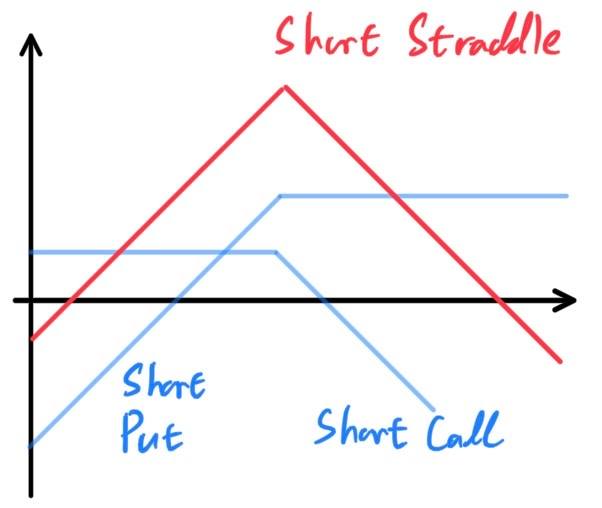 Short Straddle
Short
Put
Short Call